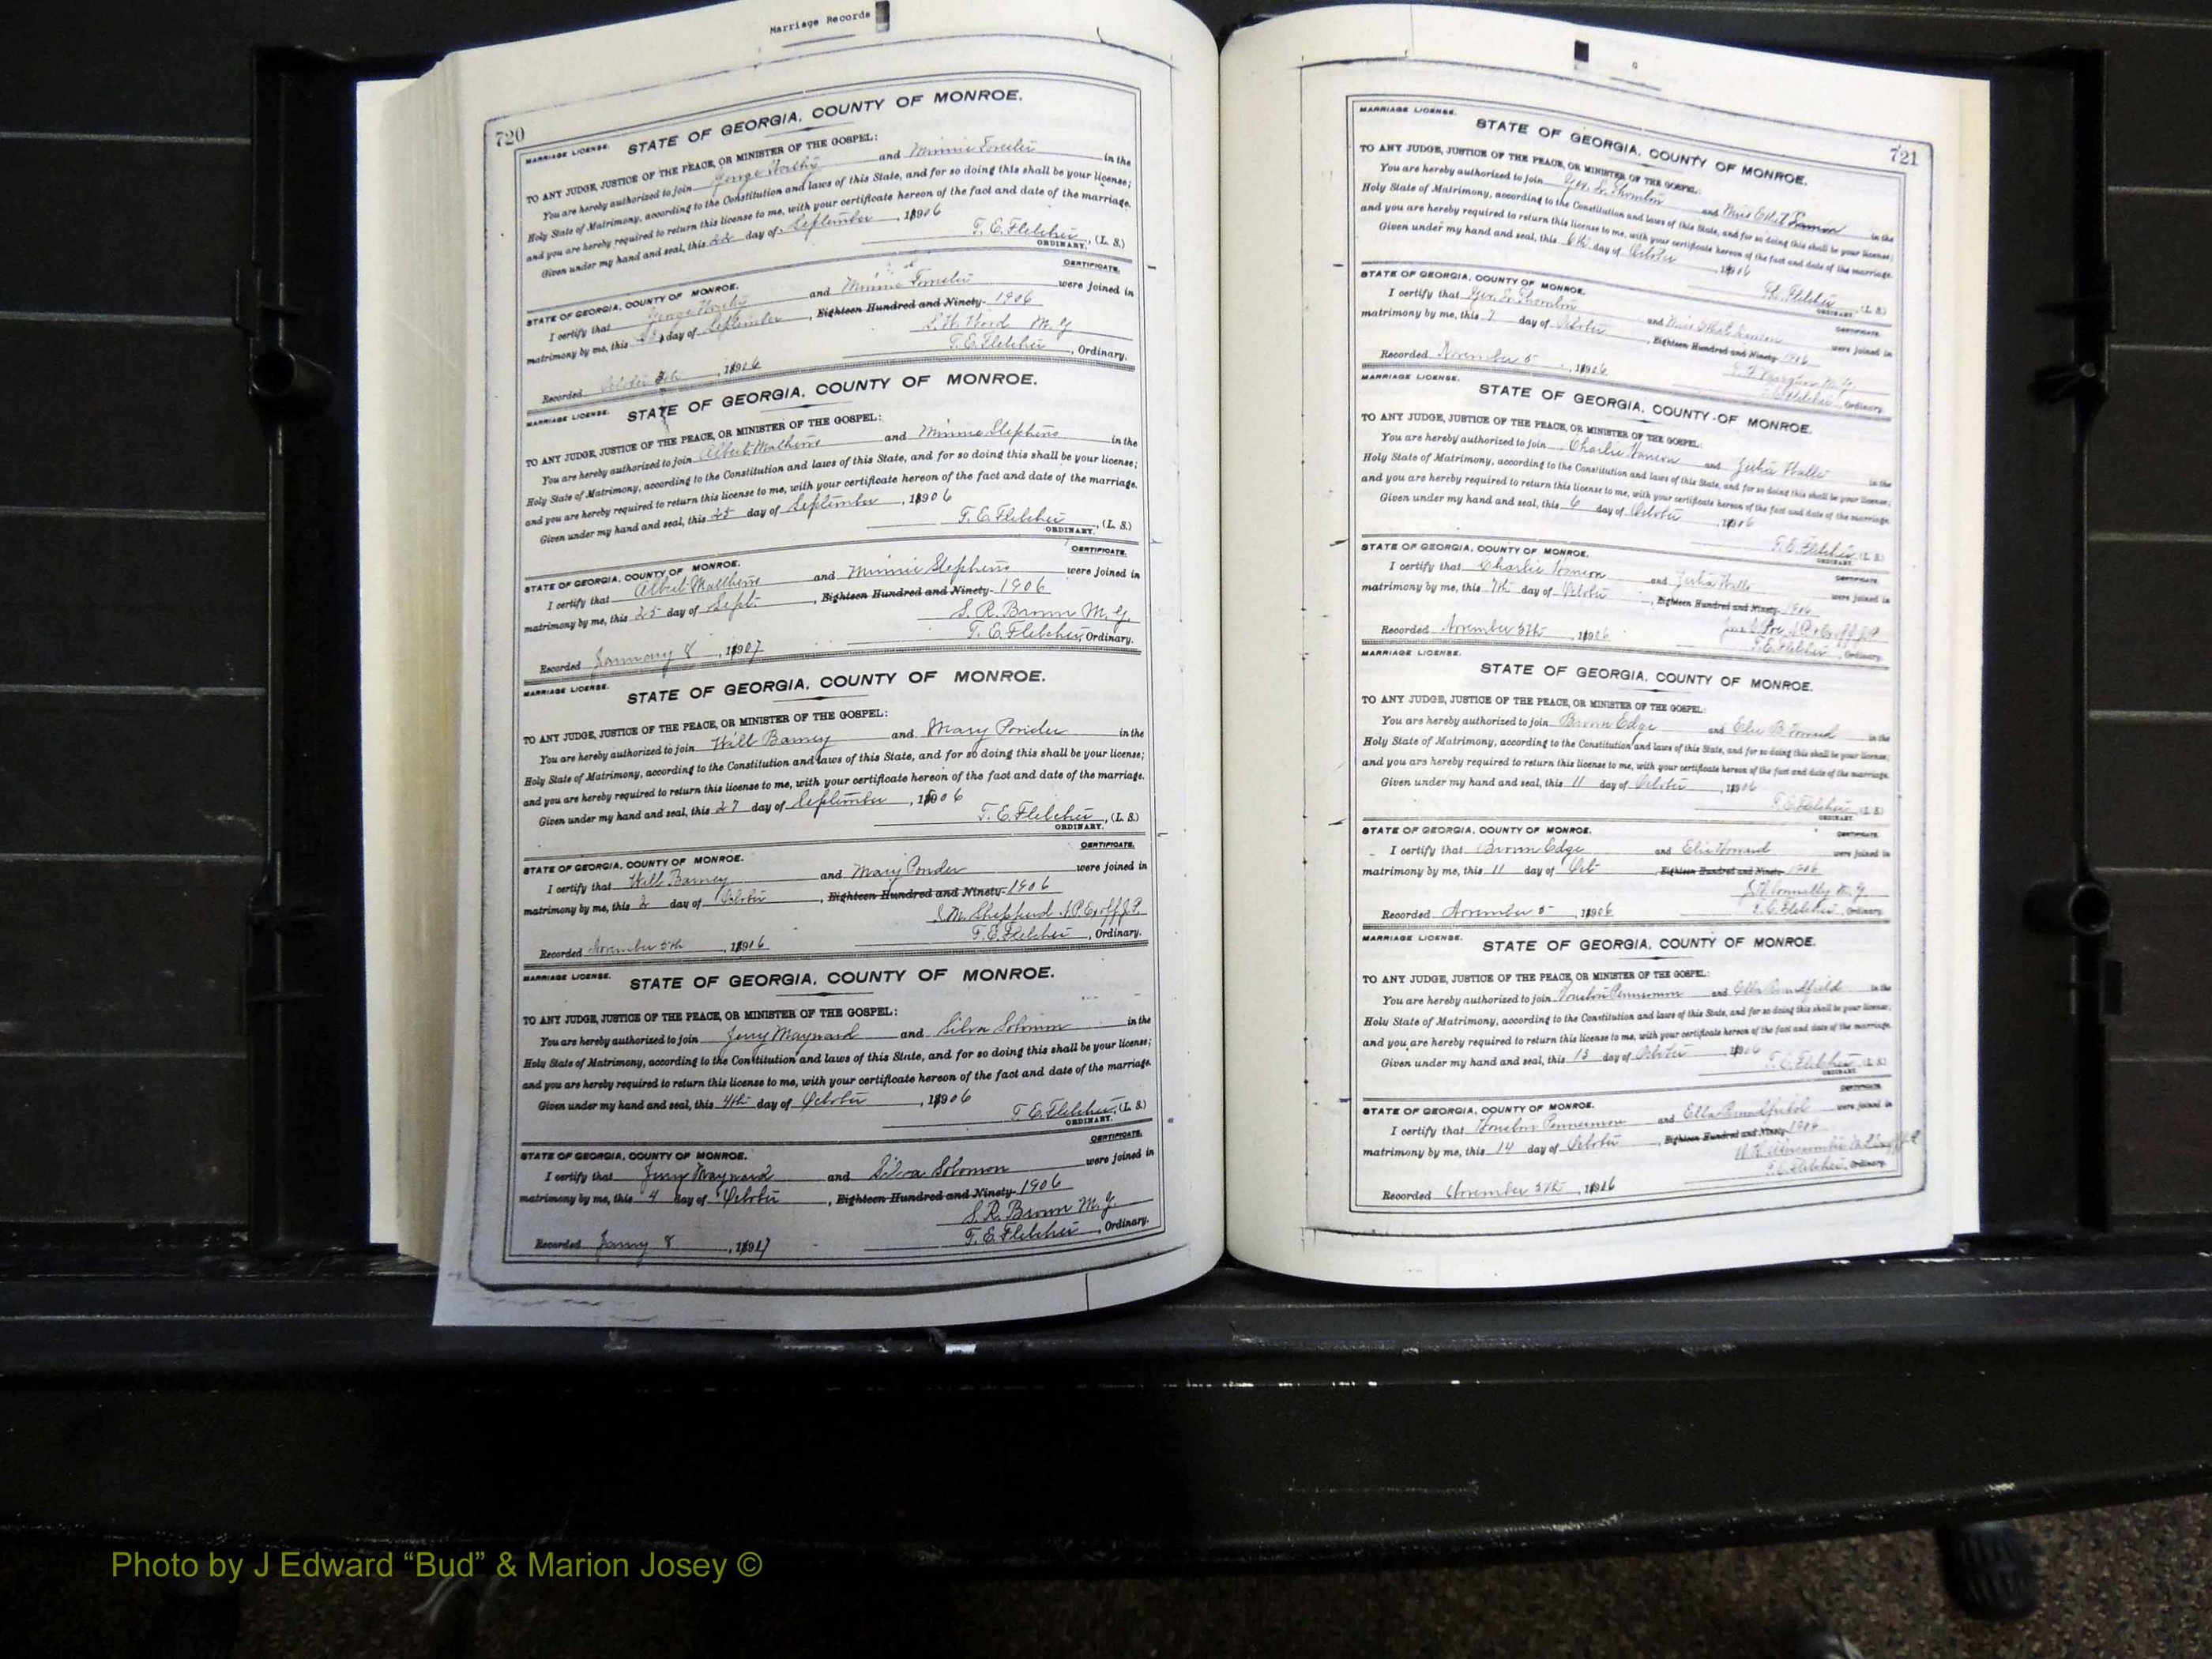 Marriage Records
720
MARRIAGE LICENSE. STATE OF GEORGIA, COUNTY OF MONROE.
TO ANY JUDGE, JUSTICE OF THE PEACE, OR MINISTER OF THE GOSPEL:
You are hereby authorized to join George and Minnie in the
Holy State of Matrimony, according to the Constitution and laws of this State, and for so doing this shall be your license;
and you are hereby required to return this license to me, with your certificate hereon of the fact and date of the marriage.
Given under my hand and seal, this 22 day of September, 1906
T. E. Fletcher, (L. S.)
ORDINARY.
CERTIFICATE.
STATE OF GEORGIA, COUNTY OF MONROE.
I certify that George and Minnie were joined in
matrimony by me, this day of September, Eighteen Hundred and Ninety- 1906
S. W. Word M. G.
T. E. Fletcher, Ordinary.
Recorded October, 1906
MARRIAGE LICENSE. STATE OF GEORGIA, COUNTY OF MONROE.
TO ANY JUDGE, JUSTICE OF THE PEACE, OR MINISTER OF THE GOSPEL:
You are hereby authorized to join Albert Mathews and Minnie Stephens in the
Holy State of Matrimony, according to the Constitution and laws of this State, and for so doing this shall be your license;
and you are hereby required to return this license to me, with your certificate hereon of the fact and date of the marriage.
Given under my hand and seal, this 25 day of September, 1906
T. E. Fletcher, (L. S.)
ORDINARY.
CERTIFICATE.
STATE OF GEORGIA, COUNTY OF MONROE.
I certify that Albert Matthews and Minnie Stephens were joined in
matrimony by me, this 25 day of Sept., Eighteen Hundred and Ninety- 1906
S. R. Brown M. G.
T. E. Fletcher, Ordinary.
Recorded January 8, 1907
MARRIAGE LICENSE. STATE OF GEORGIA, COUNTY OF MONROE.
TO ANY JUDGE, JUSTICE OF THE PEACE, OR MINISTER OF THE GOSPEL:
You are hereby authorized to join Will Barney and Mary Ponder in the
Holy State of Matrimony, according to the Constitution and laws of this State, and for so doing this shall be your license;
and you are hereby required to return this license to me, with your certificate hereon of the fact and date of the marriage.
Given under my hand and seal, this 27 day of September, 1906
T. E. Fletcher, (L. S.)
ORDINARY.
CERTIFICATE.
STATE OF GEORGIA, COUNTY OF MONROE.
I certify that Will Barney and Mary Ponder were joined in
matrimony by me, this 2 day of October, Eighteen Hundred and Ninety- 1906
J. M. Shepperd N.P. Ex off J.P.
T. E. Fletcher, Ordinary.
Recorded November 5th, 1906
MARRIAGE LICENSE. STATE OF GEORGIA, COUNTY OF MONROE.
TO ANY JUDGE, JUSTICE OF THE PEACE, OR MINISTER OF THE GOSPEL:
You are hereby authorized to join Jerry Maynard and Silva Solomon in the
Holy State of Matrimony, according to the Constitution and laws of this State, and for so doing this shall be your license;
and you are hereby required to return this license to me, with your certificate hereon of the fact and date of the marriage.
Given under my hand and seal, this 4th day of October, 1906
T. E. Fletcher, (L. S.)
ORDINARY.
CERTIFICATE.
STATE OF GEORGIA, COUNTY OF MONROE.
I certify that Jerry Maynard and Silva Solomon were joined in
matrimony by me, this 4 day of October, Eighteen Hundred and Ninety- 1906
S. R. Brown M. G.
T. E. Fletcher, Ordinary.
Recorded Jany 8, 1907
721
MARRIAGE LICENSE.
STATE OF GEORGIA, COUNTY OF MONROE.
TO ANY JUDGE, JUSTICE OF THE PEACE, OR MINISTER OF THE GOSPEL:
You are hereby authorized to join Geo. S. Thornton and Miss Ethel in the
Holy State of Matrimony, according to the Constitution and laws of this State, and for so doing this shall be your license;
and you are hereby required to return this license to me, with your certificate hereon of the fact and date of the marriage.
Given under my hand and seal, this 6th day of October, 1906
Fletcher (L. S.)
ORDINARY.
CERTIFICATE.
STATE OF GEORGIA, COUNTY OF MONROE.
I certify that Geo. S. Thornton and Miss Ethel were joined in
matrimony by me, this 7 day of October, Eighteen Hundred and Ninety- 1906
M. G.
T. E. Fletcher, Ordinary.
Recorded November 5, 1906
MARRIAGE LICENSE.
STATE OF GEORGIA, COUNTY OF MONROE.
TO ANY JUDGE, JUSTICE OF THE PEACE, OR MINISTER OF THE GOSPEL:
You are hereby authorized to join Charlie and Julia Walls in the
Holy State of Matrimony, according to the Constitution and laws of this State, and for so doing this shall be your license;
and you are hereby required to return this license to me, with your certificate hereon of the fact and date of the marriage.
Given under my hand and seal, this 6 day of October, 1906
T. E. Fletcher (L. S.)
ORDINARY.
STATE OF GEORGIA, COUNTY OF MONROE.
CERTIFICATE.
I certify that Charlie and Julia Walls were joined in
matrimony by me, this 7th day of October, Eighteen Hundred and Ninety- 1906
T. E. Fletcher, Ordinary.
Recorded November 5th, 1906
MARRIAGE LICENSE.
STATE OF GEORGIA, COUNTY OF MONROE.
TO ANY JUDGE, JUSTICE OF THE PEACE, OR MINISTER OF THE GOSPEL:
You are hereby authorized to join Brown Edge and Elie B Howard in the
Holy State of Matrimony, according to the Constitution and laws of this State, and for so doing this shall be your license;
and you are hereby required to return this license to me, with your certificate hereon of the fact and date of the marriage.
Given under my hand and seal, this 11 day of October, 1906
T. E. Fletcher (L. S.)
ORDINARY.
STATE OF GEORGIA, COUNTY OF MONROE.
CERTIFICATE.
I certify that Brown Edge and Elie Howard were joined in
matrimony by me, this 11 day of Oct, Eighteen Hundred and Ninety- 1906
Connelly M. G.
T. E. Fletcher, Ordinary.
Recorded November 5, 1906
MARRIAGE LICENSE.
STATE OF GEORGIA, COUNTY OF MONROE.
TO ANY JUDGE, JUSTICE OF THE PEACE, OR MINISTER OF THE GOSPEL:
You are hereby authorized to join Houston and Ella in the
Holy State of Matrimony, according to the Constitution and laws of this State, and for so doing this shall be your license;
and you are hereby required to return this license to me, with your certificate hereon of the fact and date of the marriage.
Given under my hand and seal, this 13 day of October, 1906
T. E. Fletcher (L. S.)
ORDINARY.
CERTIFICATE.
STATE OF GEORGIA, COUNTY OF MONROE.
I certify that Houston and Ella were joined in
matrimony by me, this 14 day of October, Eighteen Hundred and Ninety- 1906
T. E. Fletcher, Ordinary.
Recorded November 5th, 1906
Photo by J Edward “Bud” & Marion Josey ©